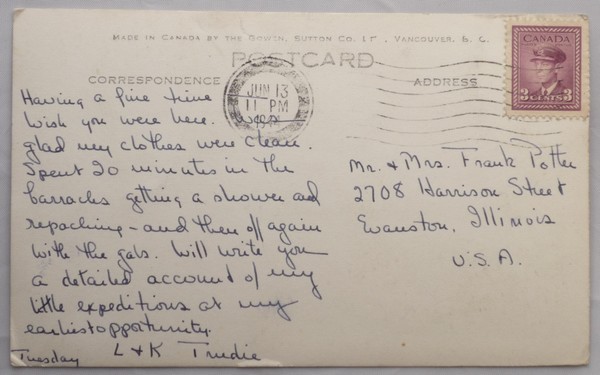 MADE IN CANADA BY THE GOWEN, SUTTON CO. LT , VANCOUVER, B. C.
POSTCARD
CORRESPONDENCE
ADDRESS
JUN 13
11 PM
CANADA
3 CENTS 3
Having a fine time
Wish you were here.
glad my clothes were clean.
Spent 20 minutes in the
barracks getting a shower and
repacking - and then off again
with the gals. Will write you
a detailed account of my
little expeditions at my
earliest opportunity.
L & K Trudie
Tuesday
Mr. & Mrs. Frank Potter
2708 Harrison Street
Evanston, Illinois
U.S.A.